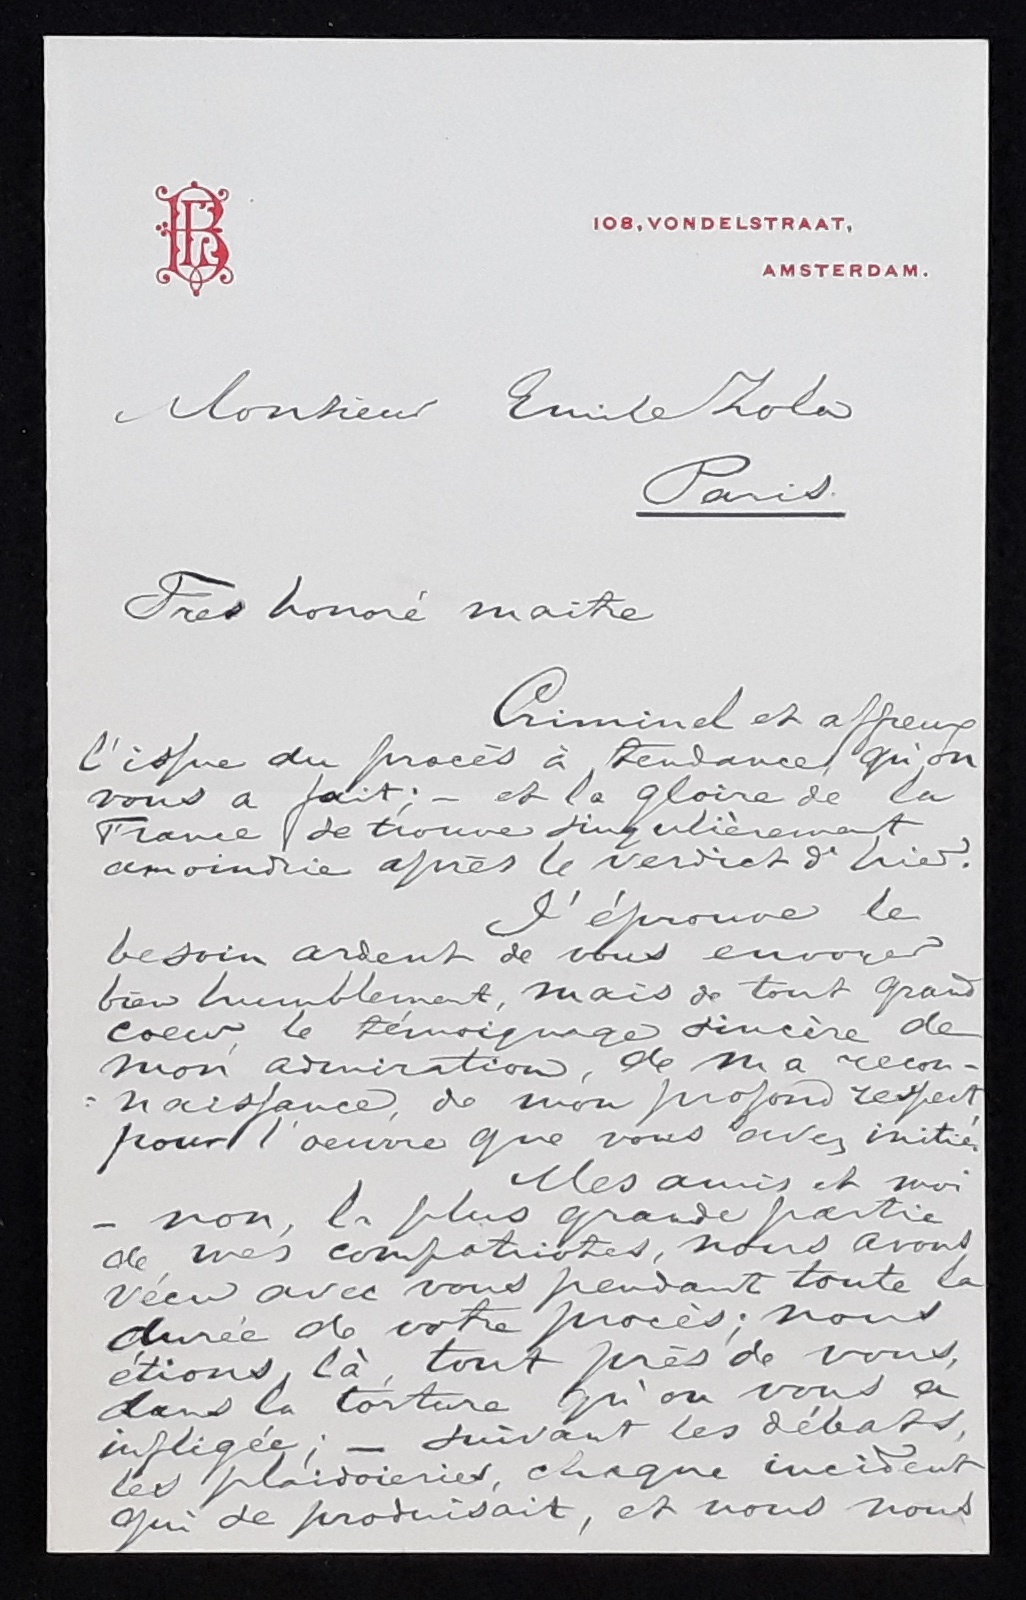 108, VONDELSTRAAT,
AMSTERDAM.
Monsieur Emile Zola
Paris.
Tres honoré maitre
Criminel et affreux
l'issue du procès à tendance, qu'on
vous a fait; — et la gloire de la
France se trouve singulièrement
amoindrie après le verdict d'hier.
J'éprouve le
besoin ardent de vous envoyer
bien humblement, mais de tout grand
coeur, le témoignage sincère de
mon admiration, de ma recon-
naissance, de mon profond respect,
pour l'oeuvre que vous avez initié.
Mes amis et moi
— non, la plus grande partie
de mes compatriotes, nous avons
vécu avec vous pendant toute la
durée de votre procès; nous
étions là, tout près de vous,
dans la torture qu'on vous a
infligée; — suivant les débats,
les plaidoieries, chaque incident
qui se produisait, et nous nous